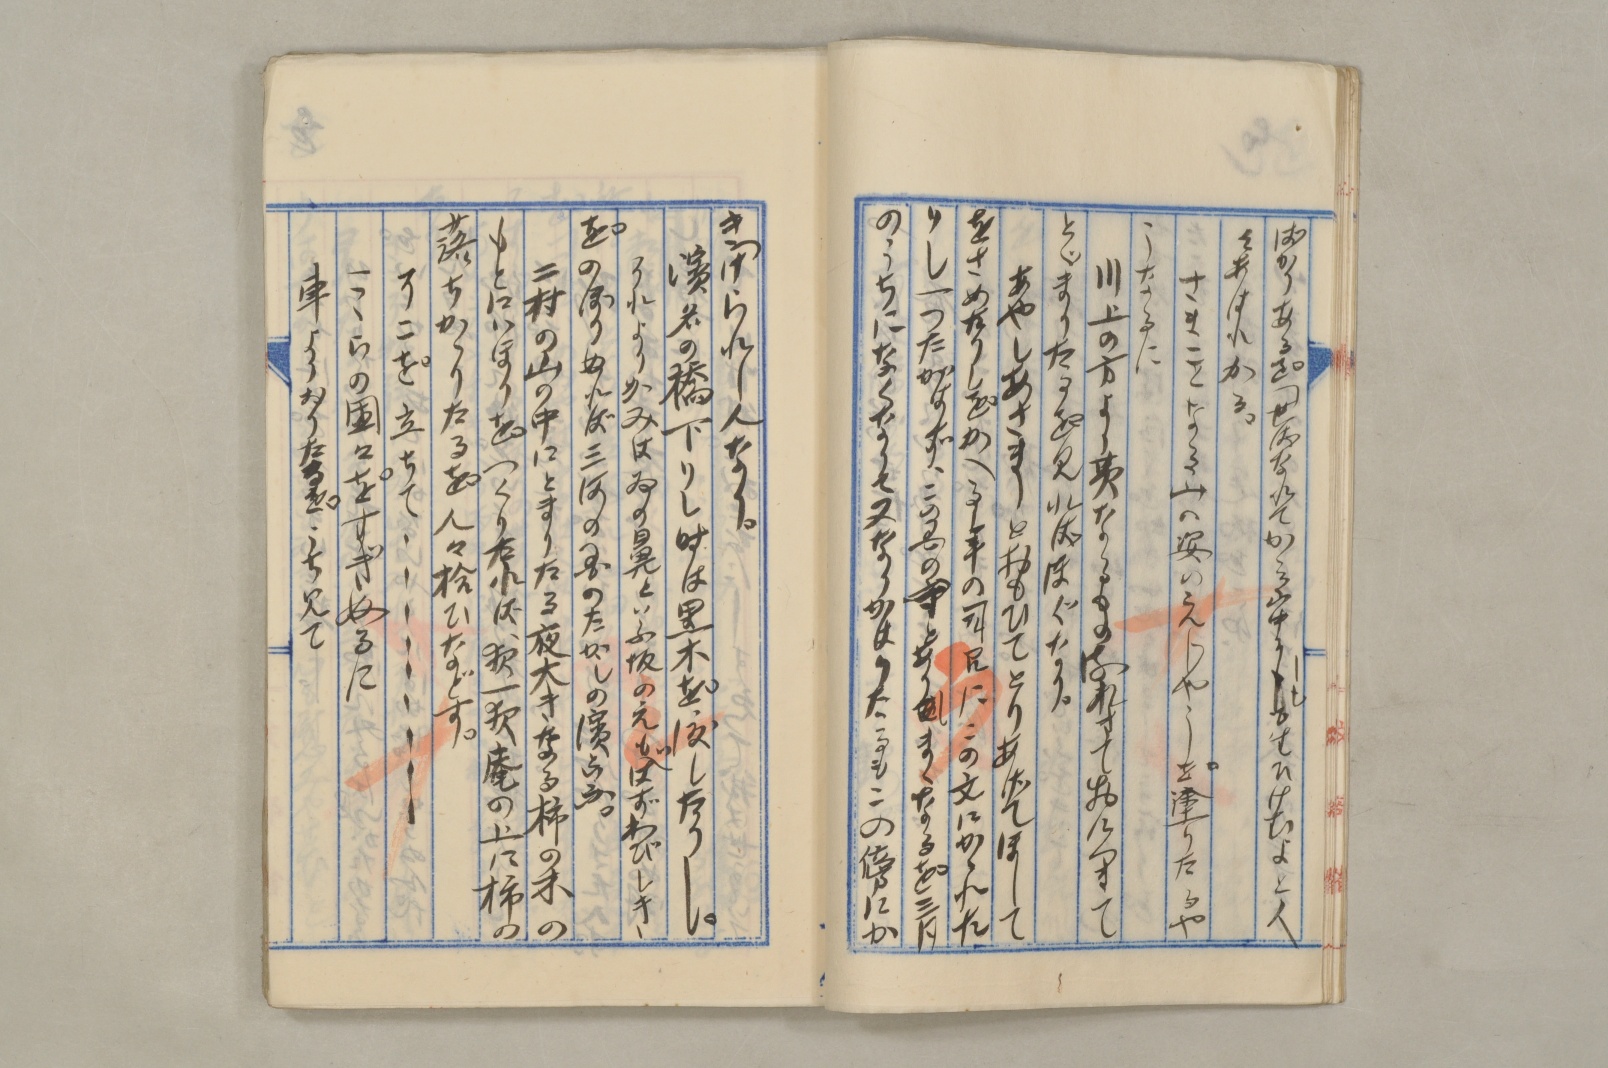 ばかりあるを世ばなれてかゝる山中にしも生ひけむよと人
〻あはれがる。
さまことなる山の姿のゑしやうを塗りたるや
うなるに
川上の方より黄なるもの流れきて物につきて
とゞまりたるを見ればほぐなり。
あやしあさましとおもひてとりあげてほして
をさめたりしをかへる年の司召にこの文にかゝれた
りし一つたがはず、この国の守とありしまゝなるを三月
のうちになくなりて又なりかはりたるもこの傍にか
きつけられし人なり。
濱名の橋下りし時は黒木を渡したりし。
それよりかみはゐの鼻といふ坂のえもいはずわびしき
をのぼりぬれば三河の国のたかしの濱といふ。
二村の山の中にとまりたる夜大きなる柿の木の
もとにいほりをつくりたれば、夜一夜庵の上に柿の
落ちかゝりたるを人々拾ひなどす。
そこを立ちて
こゝらの國々をすぎぬるに
車よりおりたるを、うち見て